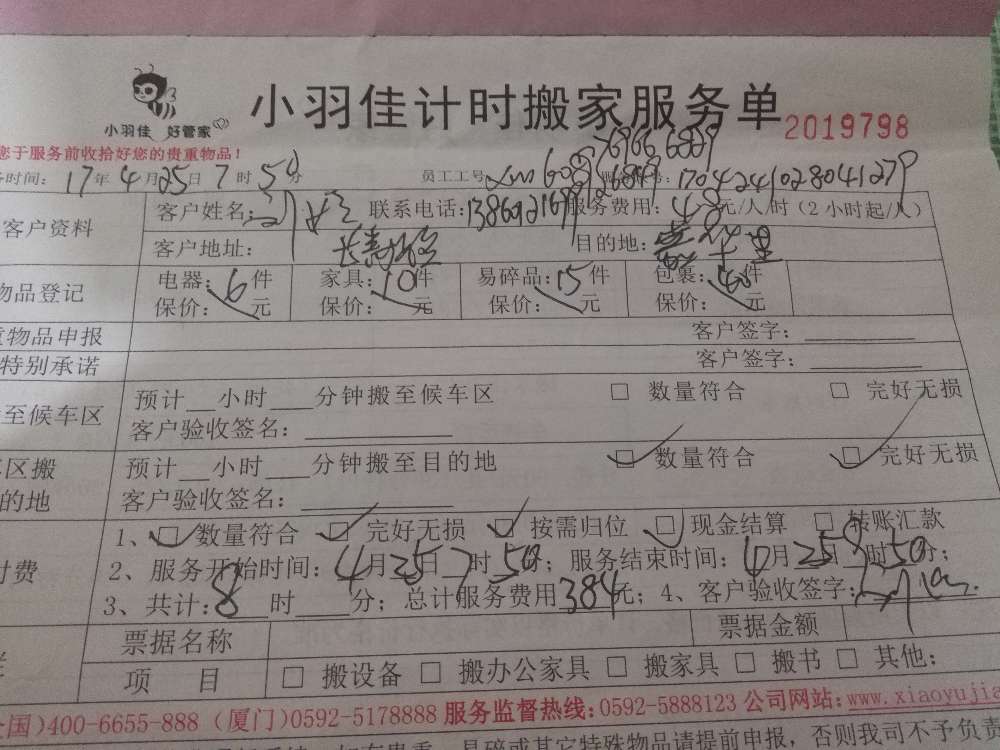 小羽佳计时搬家服务单
小羽佳 好管家
2019798
您于服务前收拾好您的贵重物品！
务时间：17年4月25日7时50分 员工工号 号：1704241028041279
客户资料
客户姓名： 联系电话： 服务费用：48元/人/时（2小时起/人）
客户地址： 目的地：
物品登记
电器：6件 家具：10件 易碎品：15件 包裹：40件
保价： 元 保价： 元 保价： 元 保价： 元
重物品申报 客户签字：
特别承诺 客户签字：
至候车区
预计 小时 分钟搬至候车区 □ 数量符合 □ 完好无损
客户验收签名：
区搬
的地
预计 小时 分钟搬至目的地 □ 数量符合 □ 完好无损
客户验收签名：
付费
1、□ 数量符合 □ 完好无损 □ 按需归位 □ 现金结算 □ 转账汇款
2、服务开始时间：4月25日7时50分；服务结束时间：4月25日9时50分；
3、共计：8时 分；总计服务费用384元；4、客户验收签字：
票据名称 票据金额
项 目 □ 搬设备 □ 搬办公家具 □ 搬家具 □ 搬书 □ 其他；
全国)400-6655-888（厦门)0592-5178888 服务监督热线：0592-5888123 公司网站：www.xiaoyujia
易碎或其它特殊物品请提前申报，否则我司不予负责